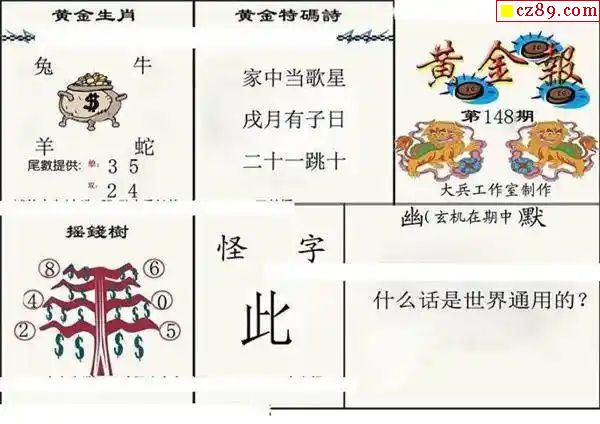 cz89.com
黄金生肖
兔 牛
羊 蛇
尾數提供: 单: 3 5
双: 2 4
黄金特碼詩
家中当歌星
戌月有子日
二十一跳十
黄金報
第148期
大兵工作室制作
摇錢樹
8 6
4 0
2 5
怪 字
此
幽(玄机在期中)默
什么话是世界通用的?